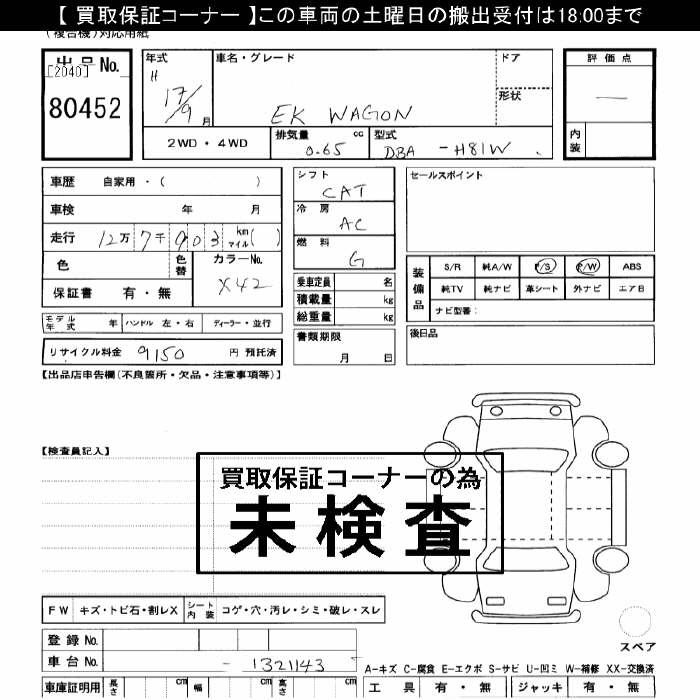 【 買取保証コーナー 】この車両の土曜日の搬出受付は18:00まで
(複合機)対応用紙
出品 No.
[2040]
80452
年式 H 17/9 月
車名・グレード EK WAGON
ドア
形状
評価点 —
内装
2WD・4WD
排気量 0.65 cc
型式 DBA - H81W
車歴 自家用・( )
車検 年 月
走行 12万 7千 9 0 3 km マイル ( )
色
色替
カラーNo. X42
保証書 有・無
モデル年式 年
ハンドル 左・右
ディーラー・並行
リサイクル料金 9150 円 預託済
シフト CAT
冷房 AC
燃料 G
乗車定員 名
積載量 kg
総重量 kg
書類期限 月 日
セールスポイント
装備品
S/R 純A/W P/S P/W ABS
純TV 純ナビ 革シート 外ナビ エアB
ナビ型番:
後日品
【出品店申告欄(不良箇所・欠品・注意事項等)】
【検査員記入】
買取保証コーナーの為
未検査
FW キズ・トビ石・割レX
シート内装 コゲ・穴・汚レ・シミ・破レ・スレ
登録 No.
車台 No. - 1321143
車庫証明用 長さ cm 幅 cm 高さ cm
スペア
A-キズ C-腐食 E-エクボ S-サビ U-凹ミ W-補修 XX-交換済
工具 有・無 ジャッキ 有・無